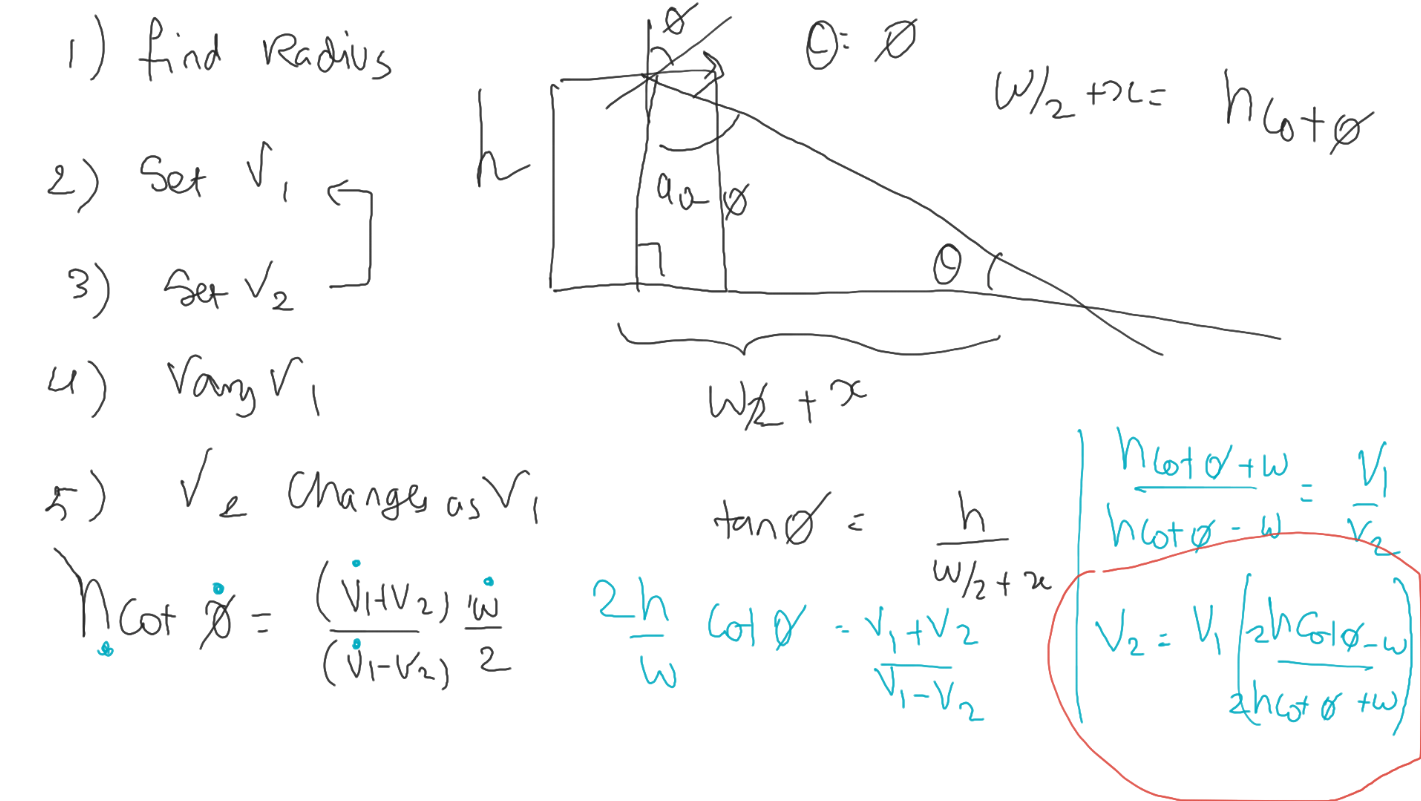 1) find Radius
2) Set V₁
3) Set V₂
4) Vary V₁
5) V₂ Changes as V₁
h cot ø = (V₁+V₂) w / (V₁-V₂) 2
ø
θ = ø
W/2 + x = h cot ø
h
90-ø
θ
W/2 + x
tan ø = h / (W/2 + x)
2h/w cot ø = (V₁+V₂) / (V₁-V₂)
(h cot ø + w) / (h cot ø - w) = V₁ / V₂
V₂ = V₁ ((2h cot ø - w) / (2h cot ø + w))